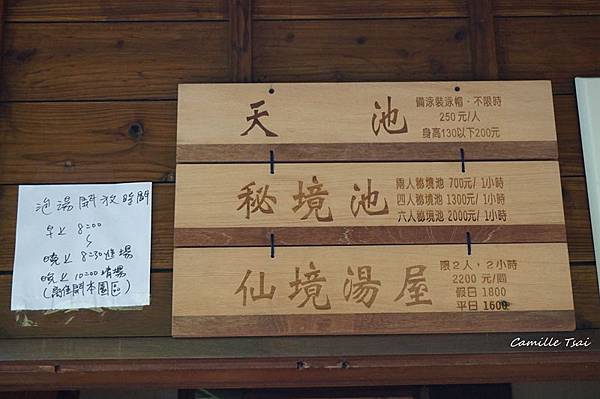 泡湯開放時間
早上 8:00
~
晚上 8:30進場
晚上 10:00清場
(離住開本園區)
天池
備泳裝泳帽·不限時
250元/人
身高130以下200元
秘境池
兩人秘境池 700元/1小時
四人秘境池 1300元/1小時
六人秘境池 2000元/1小時
仙境湯屋
限2人,2小時
2200元/間
假日 1800
平日 1600
Camille Tsai